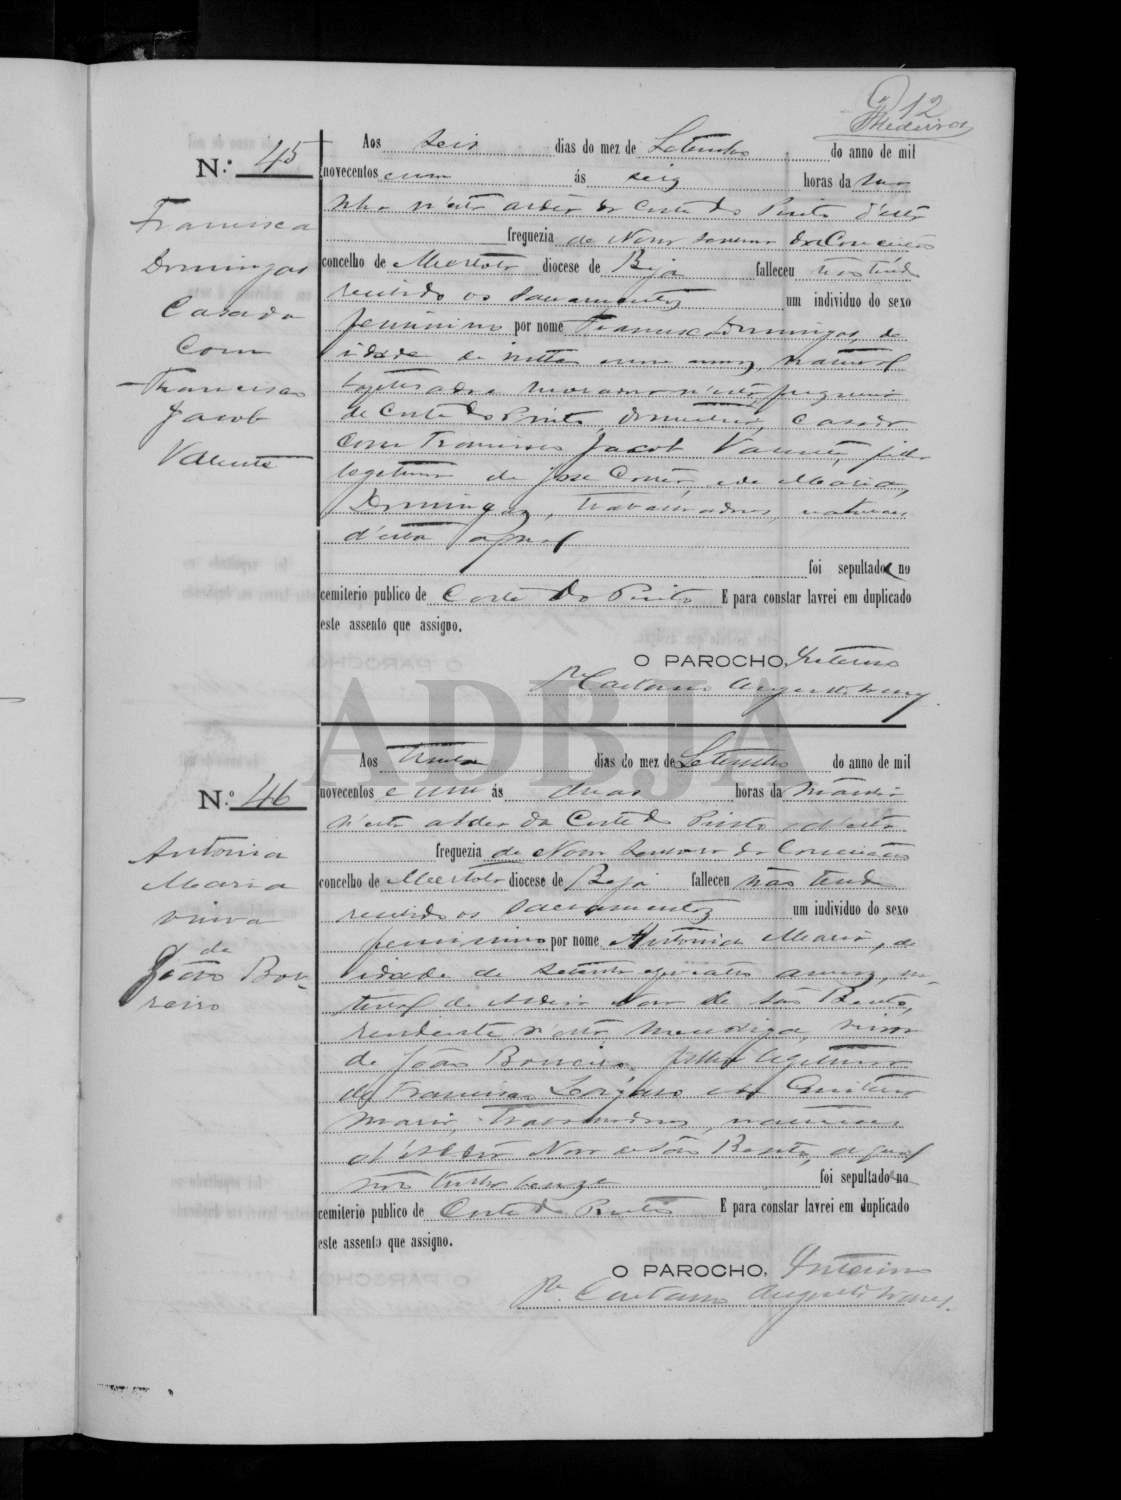 12
Medeiros
N.º 45
Francisca
Domingas
Casada
com
Francisco
Jacob
Valente
Aos seis dias do mez de Setembro do anno de mil
novecentos e um ás seis horas da ma
nha n'esta aldeia da Corte do Pinto d'esta
freguezia de Nossa Senhora da Conceição
concelho de Mertola diocese de Beja falleceu não tendo
recebido os Sacramentos um individuo do sexo
feminino por nome Francisca Domingas, de
idade de annos, natural
baptisada e moradora n'esta freguezia
de Corte do Pinto, domestica, casada
com Francisco Jacob Valente, filha
legitima de José Correa, e de Maria
Domingas, trabalhadores, naturaes
d'esta a qual
foi sepultada no
cemiterio publico de Corte do Pinto E para constar lavrei em duplicado
este assento que assigno.
O PAROCHO, Interino
Pe. Caetano Augusto
ADBJA
N.º 46
Antonia
Maria
viuva
de
João Bor-
reiro
Aos trinta dias do mez de Setembro do anno de mil
novecentos e um ás duas horas da manhã
n'esta aldea da Corte do Pinto d'esta
freguezia de Nossa Senhora da Conceição
concelho de Mertola diocese de Beja falleceu não tendo
recebido os Sacramentos um individuo do sexo
feminino por nome Antonia Maria, de
idade de setenta e quatro annos, na-
tural de Aldeia Nova de São Bento,
residente n'esta, mendiga, viuva
de João Borreiro, filha legitima
de Francisco e de
Maria, trabalhadores, naturaes
d'Aldeia Nova de São Bento, a qual
não
foi sepultada no
cemiterio publico de Corte do Pinto E para constar lavrei em duplicado
este assento que assigno.
O PAROCHO, Interino
Pe. Caetano Augusto